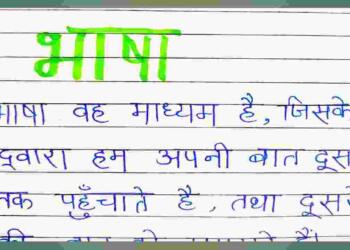 भाषा
भाषा वह माध्यम है, जिसके
द्वारा हम अपनी बात दूस
तक पहुँचाते है, तथा दूसरे